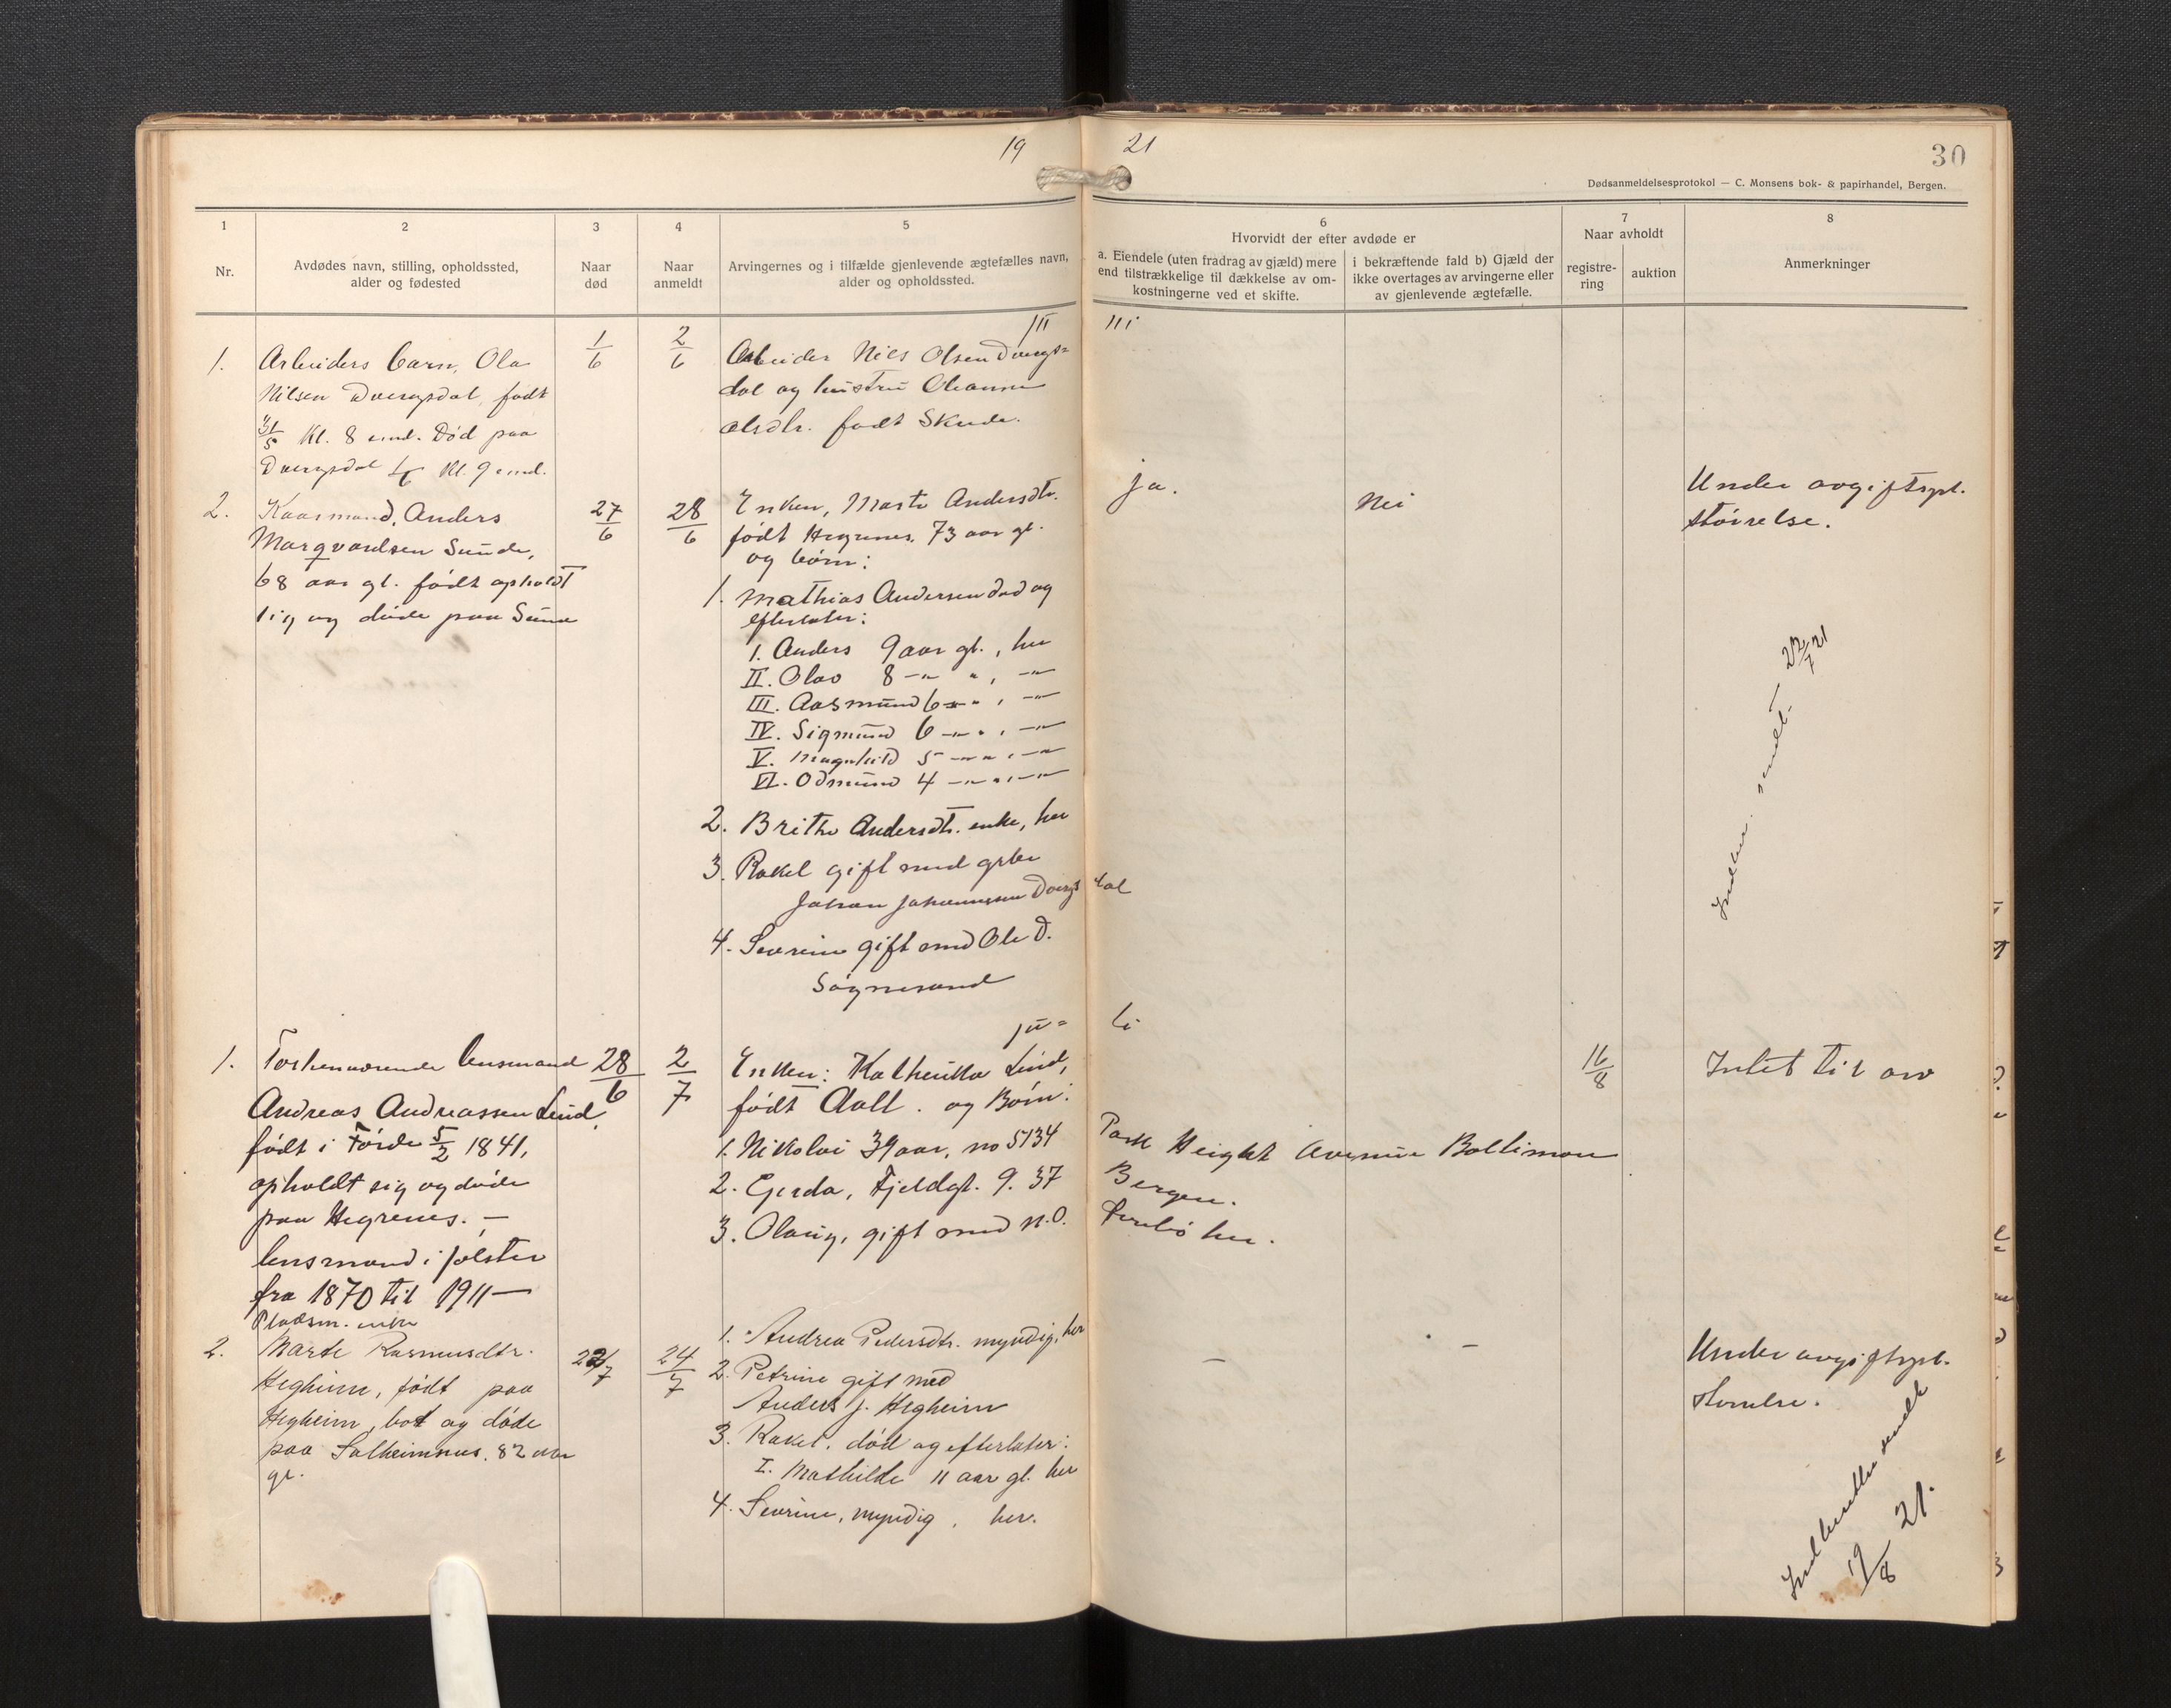 19 21
30
Dødsanmeldelsesprotokol — C. Monsens bok- & papirhandel, Bergen.
1 2 3 4 5
Nr.
Avdødes navn, stilling, opholdssted,
alder og fødested
Naar
død
Naar
anmeldt
Arvingernes og i tilfælde gjenlevende ægtefælles navn,
alder og opholdssted.
6
Hvorvidt der efter avdøde er
a. Eiendele (uten fradrag av gjæld) mere
end tilstrækkelige til dækkelse av om-
kostningerne ved et skifte.
i bekræftende fald b) Gjæld der
ikke overtages av arvingerne eller
av gjenlevende ægtefælle.
7
Naar avholdt
registre-
ring
auktion
8
Anmerkninger
Juni
1. Arbeiders barn, Ola
Nilsen Dvergsdal, født
31/5 Kl. 8 emd. Død paa
Dvergsdal 1/6 Kl. 9 emd.
1/6
2/6
Arbeider Nils Olsen Dvergs-
dal og hustru Oleanne
Olsdtr. født Skude.
2. Kaarmand, Anders
Marqvardsen Sunde,
68 aar gl. født opholdt
sig og døde paa Sunde
27/6
28/6
Enken, Marte Andersdtr.
født Hegrenes, 73 aar gl.
og børn:
1. Mathias Andersen død og
efterlater:
I. Anders 9 aar gl., her
II. Olav 8 -"- ", -"-
III. Aasmund 6 -"- ", -"-
IV. Sigmund 6 -"- ", -"-
V. Magnhild 5 -"- ", -"-
VI. Odmund 4 -"- ", -"-
2. Brithe Andersdtr. enke, her
3. Rakel gift med grbr
Johan Johannessen Dvergsdal
4. Severine gift med Ole D.
Søgnesand
ja.
Nei
Under avgiftspl.
størrelse.
Indber. sendt 22/7 21
Juli
1. Forhenværende lensmand
Andreas Andreassen Lind,
født i Førde 5/2 1841,
opholdt sig og døde
paa Hegrenes. —
lensmand i Jølster
fra 1870 til 1911 —
28/6
2/7
Enken: Kathinka Lind,
født Aall. og Børn:
1. Nikolai 39 aar, no 5134 Park Height Avenue Baltimore
2. Gerda, Fjeldgt. 9. 37 Bergen.
3. Olaug, gift med N.O. her.
16/8
Intet til arv
Pladsm. enke
2. Marte Rasmusdtr.
Hegheim, født paa
Hegheim, bot og døde
paa Salheimsnes. 82 aar
gl.
22/7
24/7
1. Andrea Pedersdtr. myndig, her
2. Petrine gift med
Anders J. Hegheim
3. Rakel, død og efterlater:
I. Mathilde 11 aar gl. her
4. Severine, myndig, her.
— —
Under avgiftspl.
størrelse.
Indberetten sendt
19/8 21.